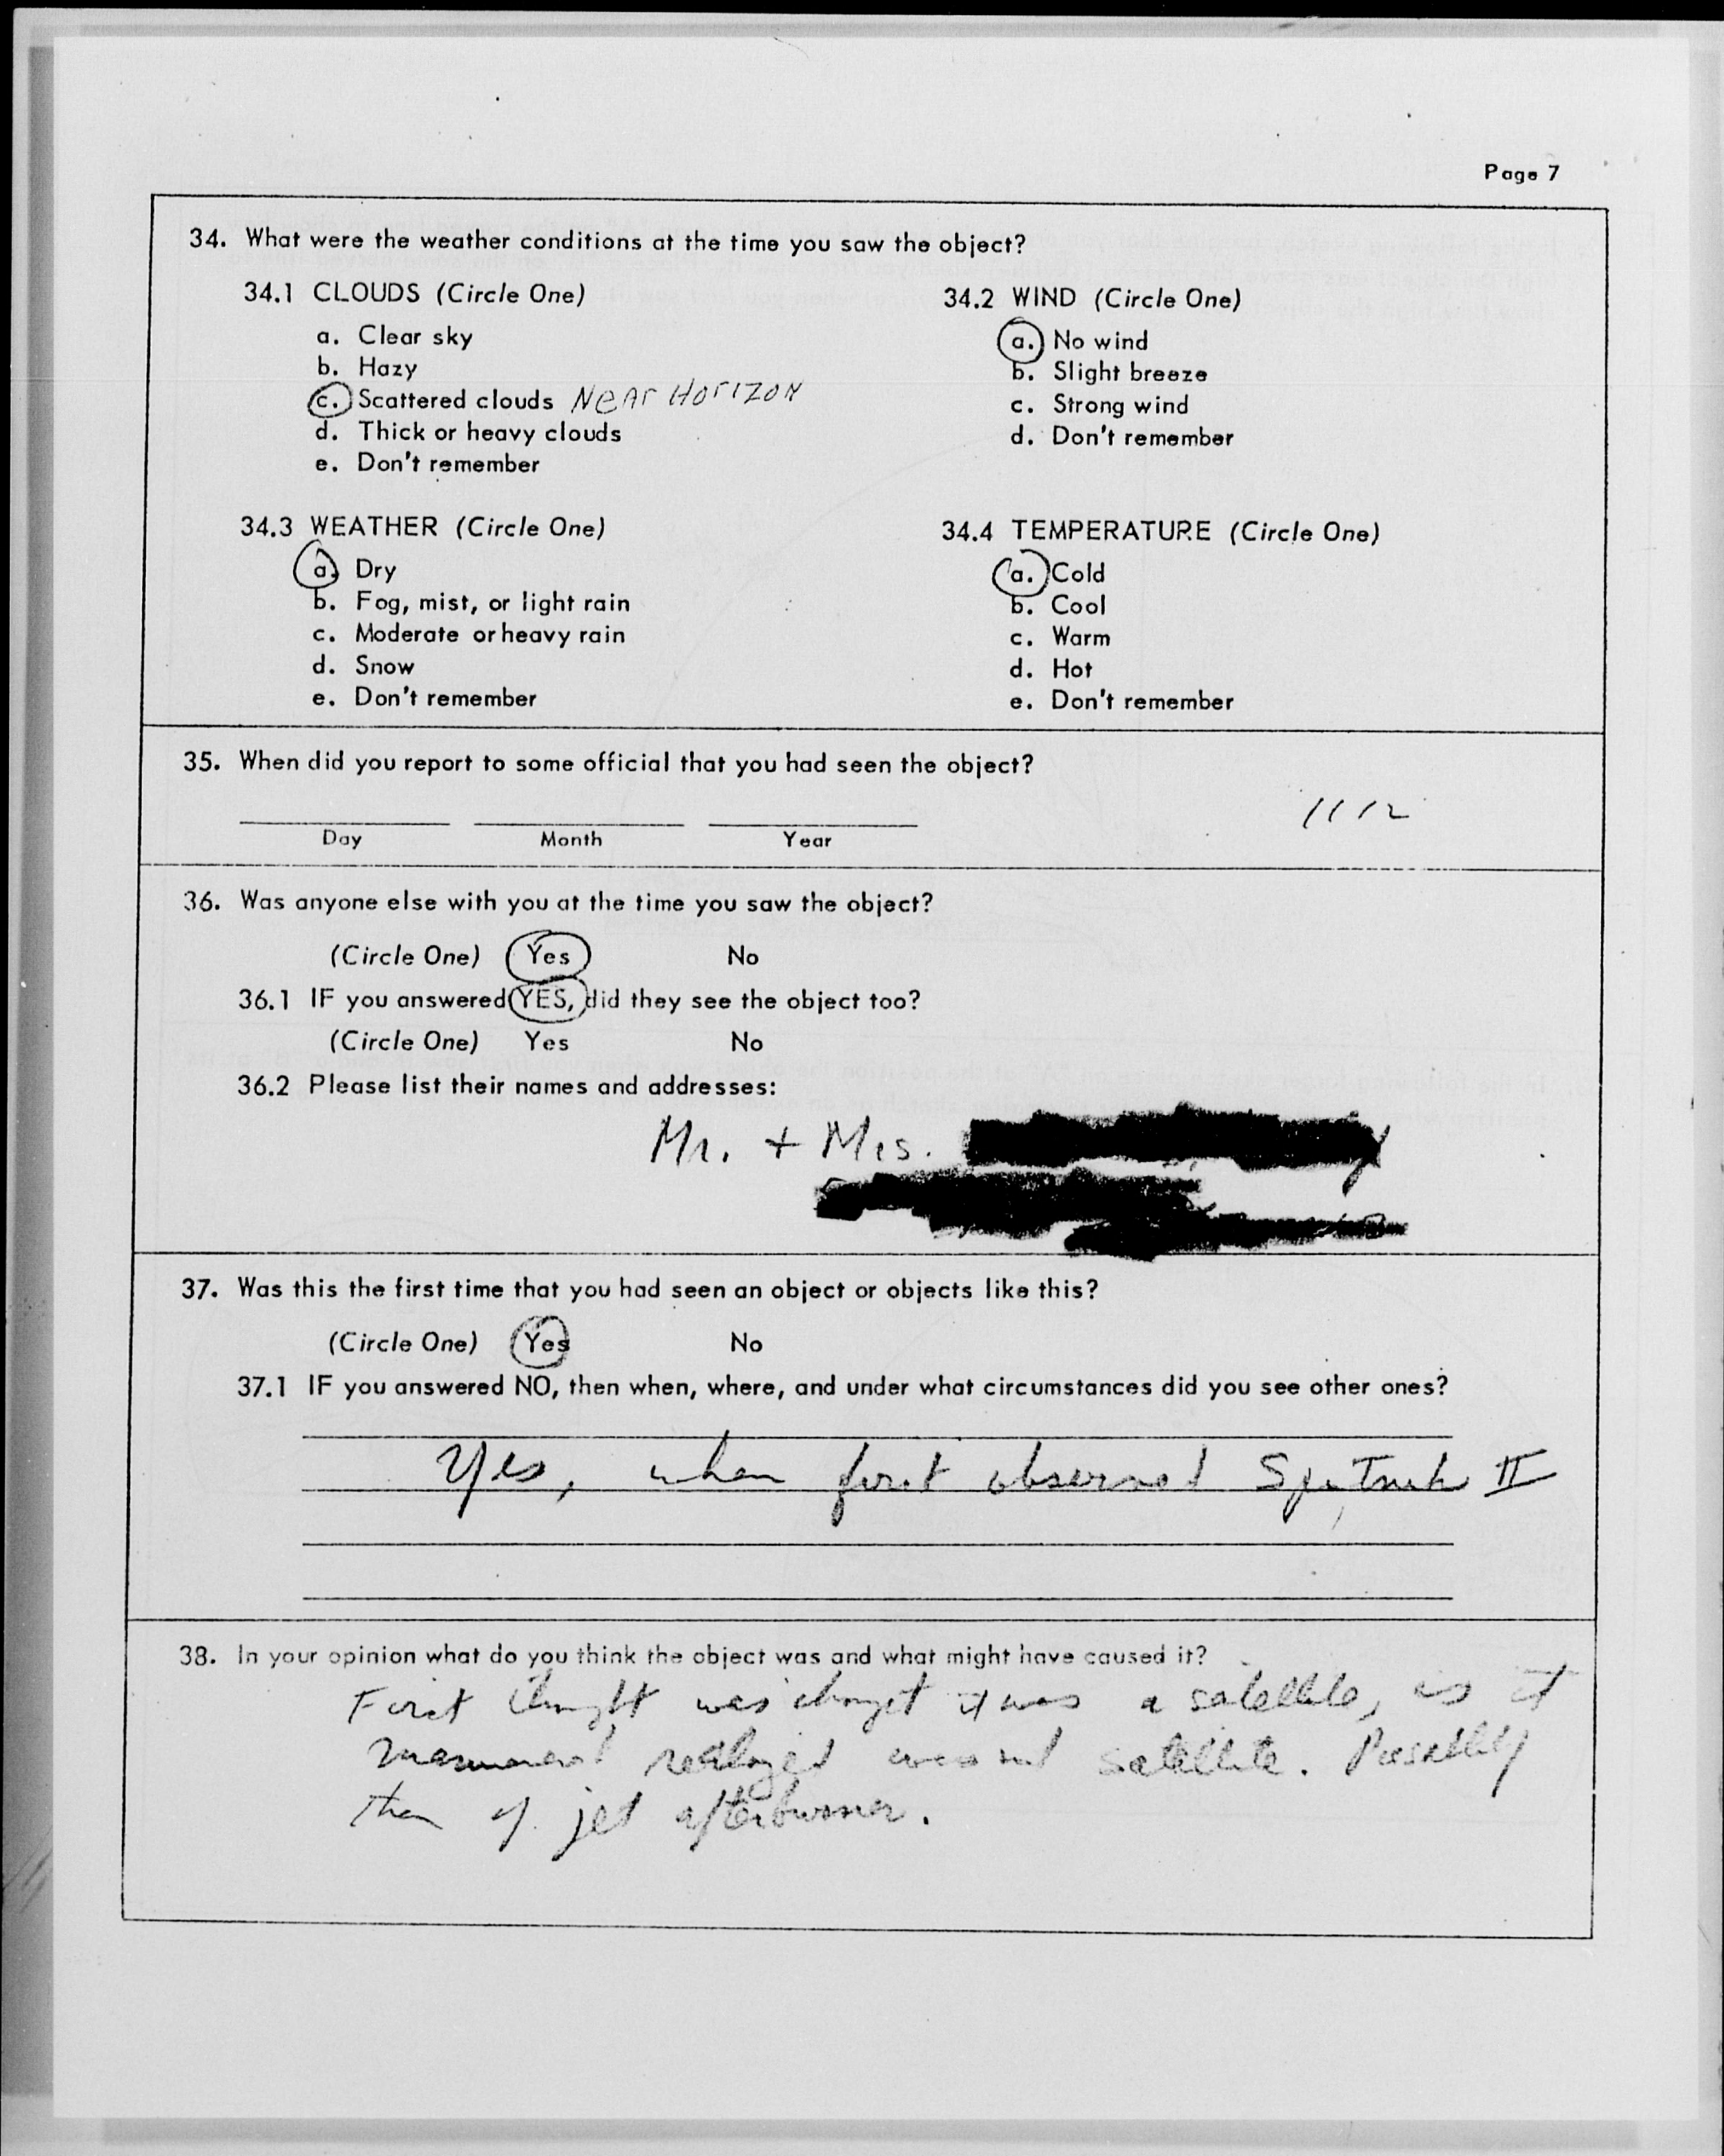 Page 7
34. What were the weather conditions at the time you saw the object?
34.1 CLOUDS (Circle One)
a. Clear sky
b. Hazy
c. Scattered clouds Near Horizon
d. Thick or heavy clouds
e. Don't remember
34.2 WIND (Circle One)
a. No wind
b. Slight breeze
c. Strong wind
d. Don't remember
34.3 WEATHER (Circle One)
a. Dry
b. Fog, mist, or light rain
c. Moderate or heavy rain
d. Snow
e. Don't remember
34.4 TEMPERATURE (Circle One)
a. Cold
b. Cool
c. Warm
d. Hot
e. Don't remember
35. When did you report to some official that you had seen the object?
1112
Day Month Year
36. Was anyone else with you at the time you saw the object?
(Circle One) Yes No
36.1 IF you answered YES, did they see the object too?
(Circle One) Yes No
36.2 Please list their names and addresses:
Mr. + Mrs.
37. Was this the first time that you had seen an object or objects like this?
(Circle One) Yes No
37.1 IF you answered NO, then when, where, and under what circumstances did you see other ones?
Yes, when first observed Sputnik II
38. In your opinion what do you think the object was and what might have caused it?
First thought was it was a satellite, as it
realized satellite. Possibly
jet afterburner.